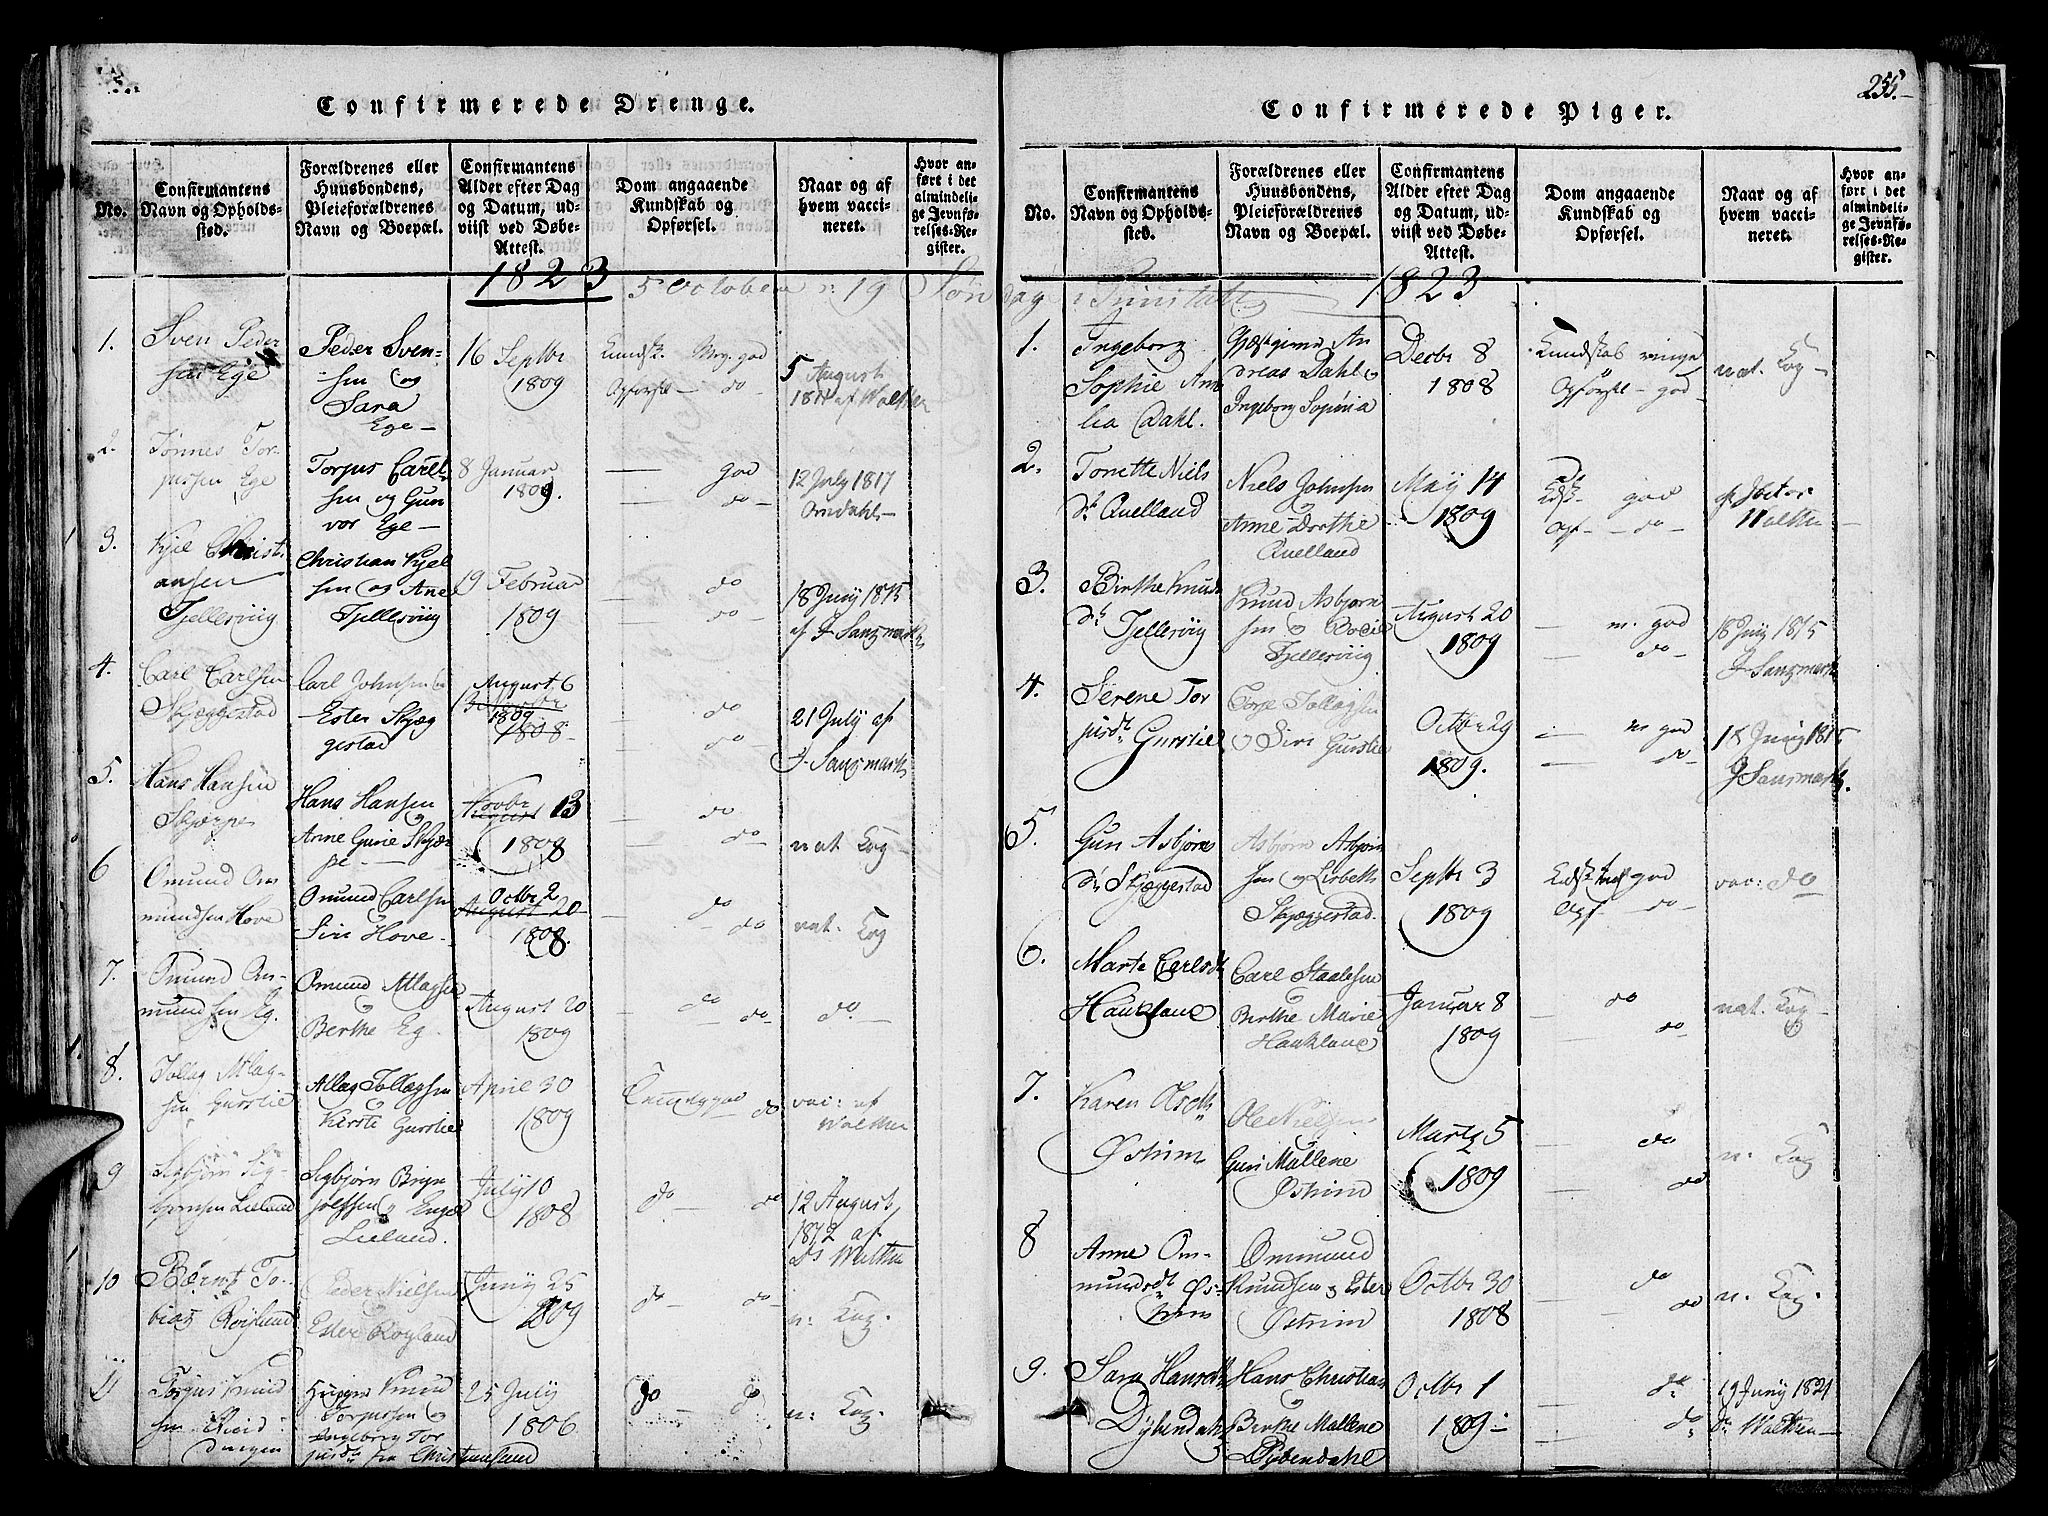 Confirmerede Drenge.
No.
Confirmantens
Navn og Opholds-
sted.
Forældrenes eller
Huusbondens,
Pleieforældrenes
Navn og Boepæl.
Confirmantens
Alder efter Dag
og Datum, ud-
viist ved Døbe-
Attest.
Dom angaaende
Kundskab og
Opførsel.
Naar og af
hvem vacci-
neret.
Hvor an-
ført i det
almindeli-
ge Jevnfø-
relses-Re-
gister.
1823
5 October 19 Søndag Trinitatis
1.
Sven Peder
sen Ege
Peder Sven-
sen og
Sara
Ege
16 Septbr
1809
Kundsk. Meg. god
Opførsel do
5 August
1811 af Walther
2.
Tønnes Tor-
jussen Ege
Torjus Carel
sen og Gun
vor Ege
8 Januar
1809.
god
do
12 July 1817
Omdahl
3.
Kjel Christi
ansen
Fjellesviig
Christian Kjel
sen og Ane
Fjellesviig
19 Februar
1809
do
do
18 Juny 1815
af J Sangsmark
4.
Carl Carlsen
Skjæggestad
Carl Johnsen
Ester Skjæg
gestad
August 6
1809
1808
do
do
21 July af
J. Sangsmark
5.
Hans Hansen
Skjærpe
Hans Hansen
Anne Gurie Skjær
pe
Novbr
August 13
1808
do
do
nat Kog
6
Omund Om
mundsen Hove
Omund Carlsen
Siri Hove
Octbr 2
August 20
1808.
do
do
nat. Kog
7.
Omund Om-
mundsen Eg.
Omund Atlagsen
Berthe Eg.
August 20
1809
do
do
do
8.
Tollag Atlag-
sen Gurslie
Atlag Tollagsen
Kirste Gurslie
April 30
1809
do
vac: af
Walther
9
Sigbjørn Sig-
bjørnsen Lieland
Sigbjørn Bryn
jolfsen Engel
Lieland.
July 10
1808
do
do
12 August
1812 af
Walther
10
Bærnt To-
bias Røyland
Peder Nielsen
Ester Røyland
Juny 25
1809
do
do
n: Kog.
11
Torjus Knud
sen
Knud
Torjussen
Ingeborg Tor
jusdr fra Christiansand
25 July
1806
do
do
n: Kog
255.
Confirmerede Piger.
No.
Confirmantens
Navn og Opholds-
sted.
Forældrenes eller
Huusbondens,
Pleieforældrenes
Navn og Boepæl.
Confirmantens
Alder efter Dag
og Datum, ud-
viist ved Døbe-
Attest.
Dom angaaende
Kundskab og
Opførsel.
Naar og af
hvem vacci-
neret.
Hvor an-
ført i det
almindeli-
ge Jevnfø-
relses-Re-
gister.
1823
1.
Ingeborg
Sophie Am
lia Dahl.
Gjæstgiver An
dreas Dahl
Ingeborg Sophia
Decbr 8
1808
Kundskab ringe
Opførsel god
nat. Kog
2.
Tonette Niels
dr Qvelland
Niels Johnsen
Anne Dorthe
Qvelland
May 14
1809
Kdsk god
Opf do
af
Walther
3.
Birthe Knuds
dr Fjellesviig
Knud Asbjørn
sen Bodil
Fjellesviig
August 20
1809
m. god
do
18 Juny 1815
J Sangsmark
4.
Serene Tor
jusdr Gurslie
Torje Tollagsen
Siri Gurslie
Octbr 29
1809.
m god
do
18 Juny 1815
J Sangsmark.
5.
Gun Asbjørns
dr Skjæggestad
Asbjørn Asbjørn
sen og Lisbeth
Skjæggestad.
Septbr 3
1809
Kdsk god
Opf do
vac: do
6.
Marte Carlsdr
Haukland
Carl Staalesen
Berthe Marie
Haukland
Januar 8
1809
do
do
nat. Kog
7.
Karen Olsdtr
Østrim
Ole Nielsen
Guri Mallene
Østrim
Marty 5
1809
do
do
n. Kog
8
Anne Om-
mundsdtr Øs-
trim
Ommund
Knudsen Ester
Østrim
Octbr 30
1808
do
do
n. Kog.
9.
Sara Hansdtr
Dybendahl
Hans Christian
Berthe Mallene
Dybendahl
Octbr 1
1809
do
do
19 Juny 1821
Dr Walther